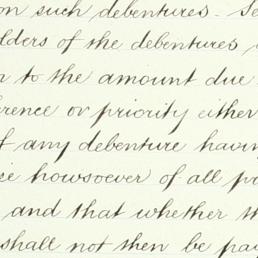 on such debentures. Se
lders of the debentures
n to the amount due
erence or priority either
f any debenture having
se howsoever of all pa
and that whether th
shall not then be pay